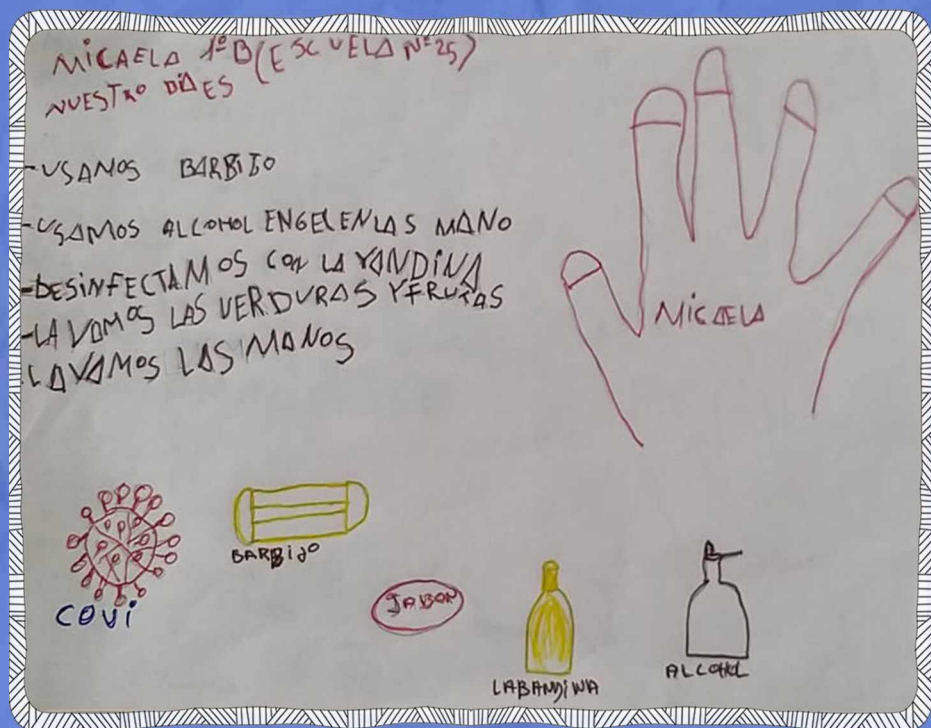 MICAELA 1º B (ESCUELA Nº 25)
NUESTRO DIA ES
-USAMOS BARBIJO
-USAMOS ALCOHOL ENGELENLAS MANO
-DESINFECTAMOS CON LA VANDINA
-LAVAMOS LAS VERDURAS Y FRUTAS
LAVAMOS LAS MANOS
MICAELA
COVI
BARBIJO
JABON
LABANDINA
ALCOHOL